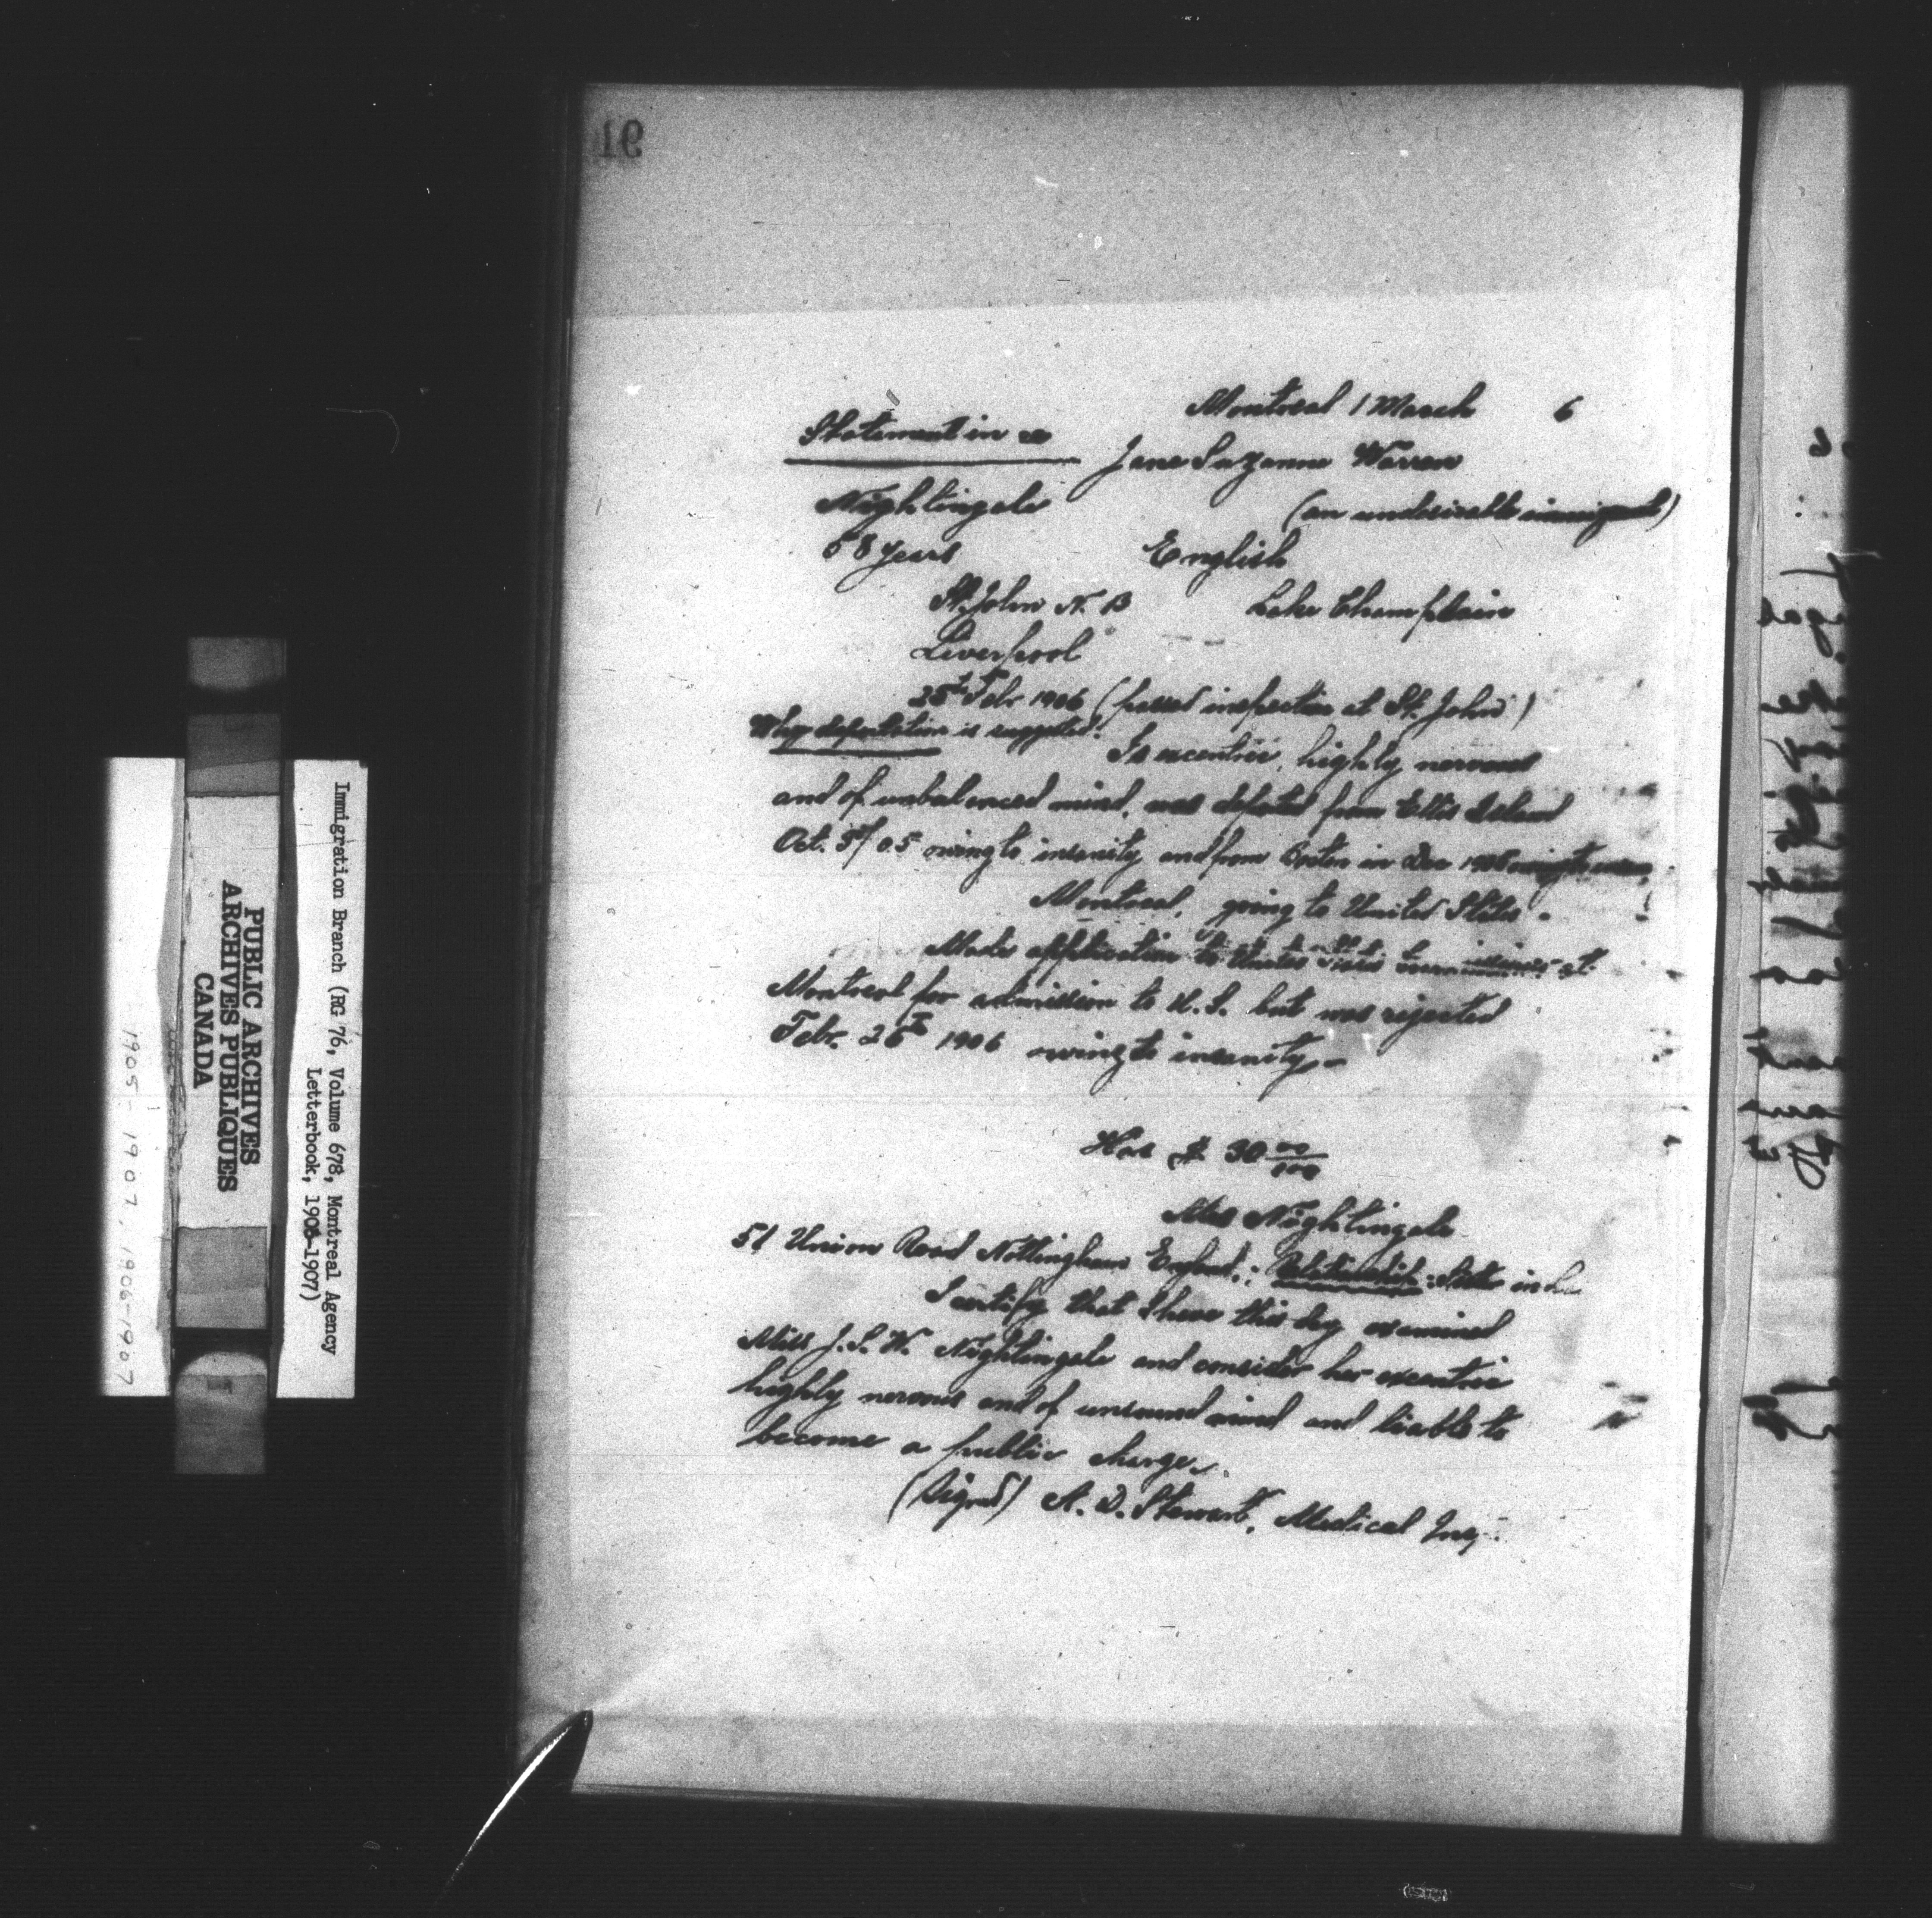 16
Montreal 1 March 6
Statement in re
Jane Suzanne Warren
Nightingale (an undesirable immigrant)
68 years English
St. John N. B Lake Champlain
Liverpool
25th Febr 1906 (passed inspection at St. John)
Why deportation is suggested:
Is excentric, highly nervous
and of unbalanced mind, was deported from Ellis Island
Oct. 05 owing to insanity and from Boston in Dec 1905 owing to
Montreal, going to United States.
Made application to United States at
Montreal for admission to U.S. but was rejected
Febr. 26th 1906 owing to insanity.
Has $ 30 00/100
Nightingale
51 Union Road Nottingham England.: Relationship: Sister in
I certify that I have this day examined
Miss J. S. W. Nightingale and consider her excentric
highly nervous and of unsound mind and liable to
become a public charge.
(Signed) A. D. Stewart, Medical Insp.
Immigration Branch (RG 76, Volume 678, Montreal Agency
Letterbook, 1906-1907)
PUBLIC ARCHIVES
ARCHIVES PUBLIQUES
CANADA
1905-1907, 1906-1907